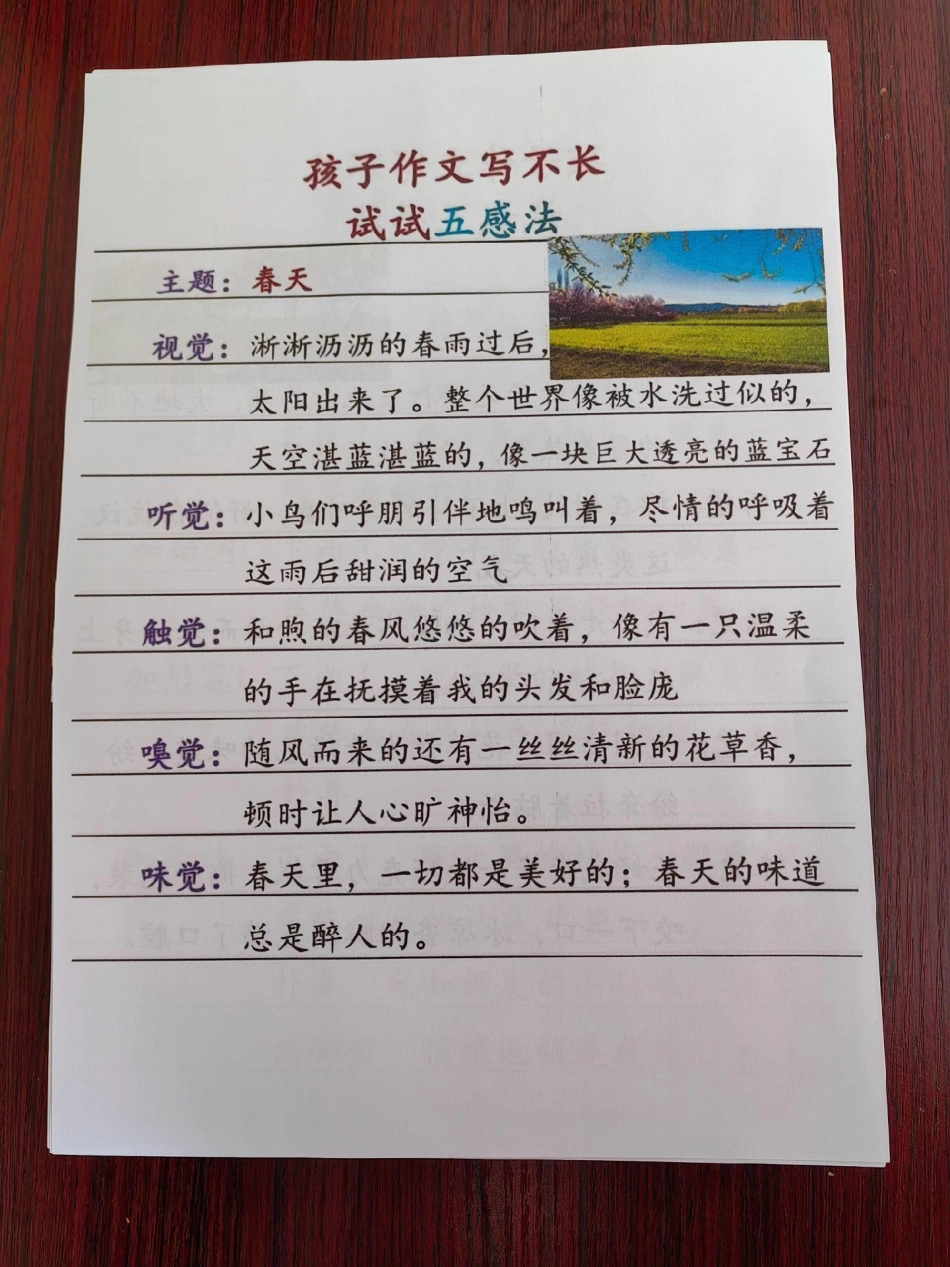 孩子作文写不长
试试五感法
主题：春天
视觉：淅淅沥沥的春雨过后，
太阳出来了。整个世界像被水洗过似的，
天空湛蓝湛蓝的，像一块巨大透亮的蓝宝石
听觉：小鸟们呼朋引伴地鸣叫着，尽情的呼吸着
这雨后甜润的空气
触觉：和煦的春风悠悠的吹着，像有一只温柔
的手在抚摸着我的头发和脸庞
嗅觉：随风而来的还有一丝丝清新的花草香，
顿时让人心旷神怡。
味觉：春天里，一切都是美好的；春天的味道
总是醉人的。